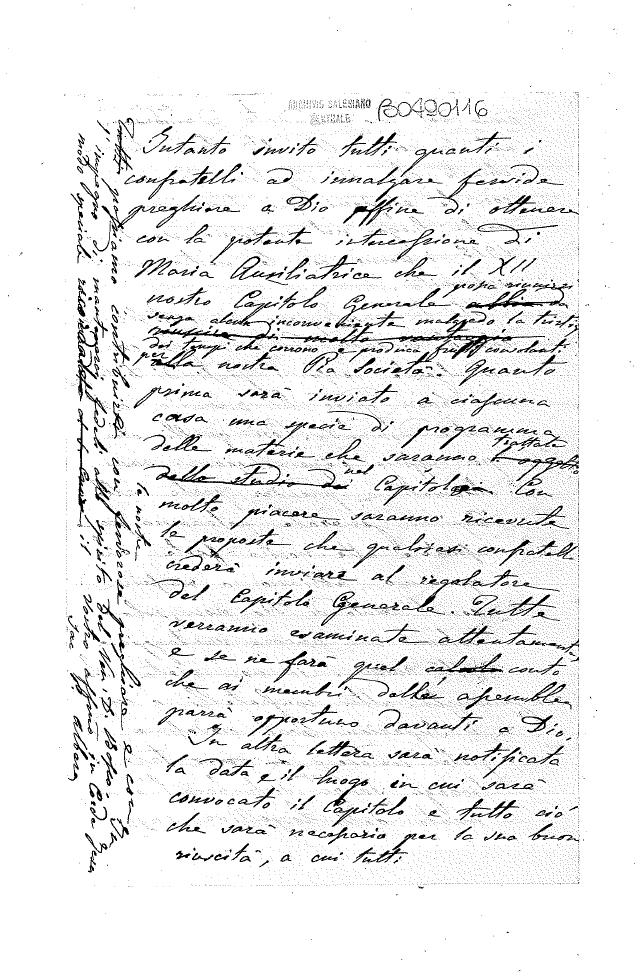 ARCHIVIO SALESIANO
CENTRALE
B0490116
Intanto invito tutti quanti i
confratelli ad innalzare fervide
preghiere a Dio affine di ottenere
con la potente intercessione di
Maria Ausiliatrice che il XII
nostro Capitolo Generale abbia da
possa riunirsi
senza alcun inconveniente malgrado la tristezza
riuscire di molto vantaggio
dei tempi che corrono e produca frutti consolanti
per
alla nostra Pia Società. Quanto
prima sarà inviato a ciascuna
casa una specie di programma
delle materie che saranno trattate
l'oggetto
dello studio dei nel Capitolo. Con
molto piacere saranno ricevute
le proposte che qualsiasi confratello
crederà inviare al regolatore
del Capitolo Generale. Tutte
verranno esaminate attentamente,
e se ne farà quel conto
che ai membri dell'assemblea
parrà opportuno davanti a Dio.
In altra lettera sarà notificata
la data e il luogo in cui sarà
convocato il Capitolo e tutto ciò
che sarà necessario per la sua buona
riuscita, a cui tutti
Tutti possiamo contribuire con fervorose preghiere e con
le nostre
l'impegno di mantenerci fedeli allo spirito del Ven. D. Bosco.
modo speciale il vostro affmo in Corde Jesu
Sac. Albera